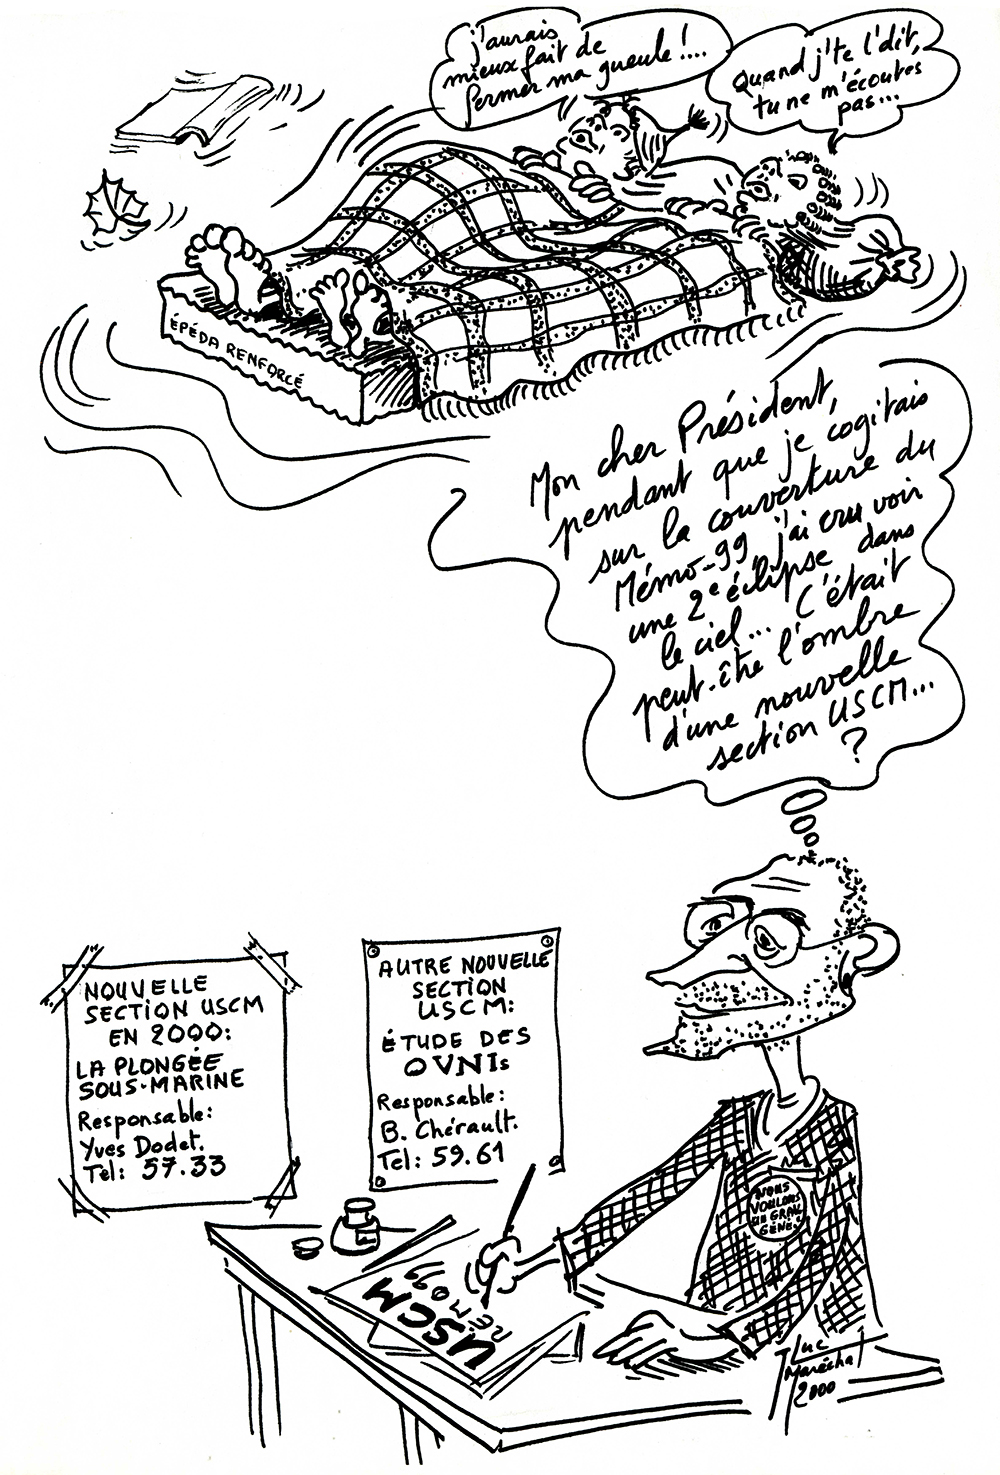 j'aurais
mieux fait de
fermer ma gueule !....
Quand j'te l'dit,
tu ne m'écoutes
pas...
ÉPÉDA RENFORCÉ
Mon cher Président,
pendant que je cogitais
sur la couverture du
Mémo-99, j'ai cru voir
une 2e éclipse dans
le ciel... C'était
peut-être l'ombre
d'une nouvelle
section USCM...
?
NOUVELLE
SECTION USCM
EN 2000:
LA PLONGÉE
SOUS-MARINE
Responsable:
Yves Dodet.
Tél: 57.33
AUTRE NOUVELLE
SECTION
USCM:
ÉTUDE DES
OVNIs
Responsable:
B. Chérault.
Tél: 59.61
NOUS
VOULONS
GÈNE
USCM
MÉMO 99
Luc
Maréchal
2000